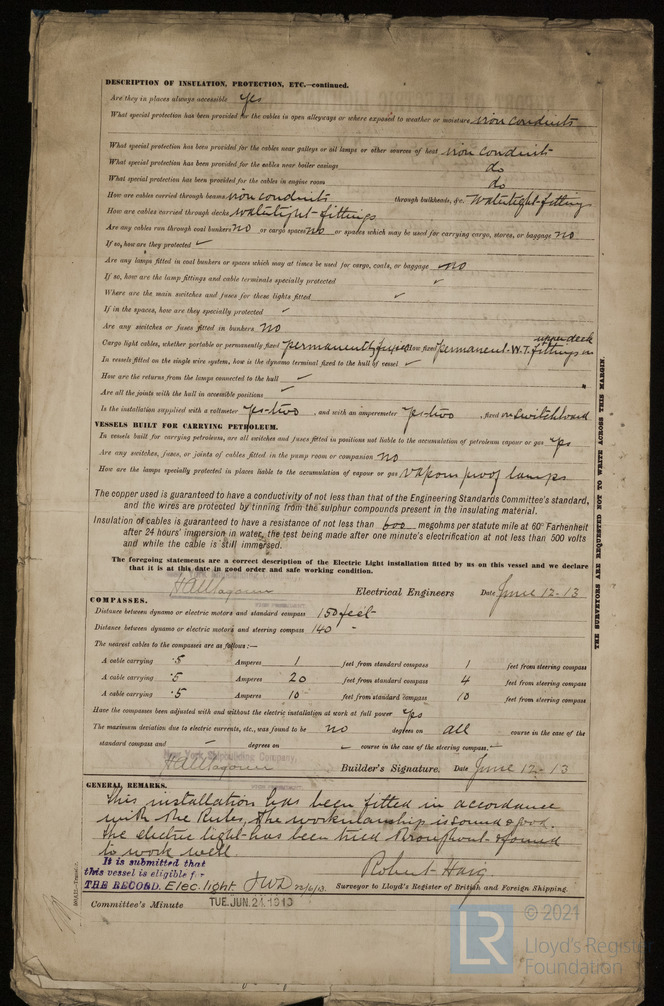 DESCRIPTION OF INSULATION, PROTECTION, ETC.—continued.
Are they in places always accessible yes
What special protection has been provided for the cables in open alleyways or where exposed to weather or moisture iron conduits
What special protection has been provided for the cables near galleys or oil lamps or other sources of heat iron conduit
What special protection has been provided for the cables near boiler casings do
What special protection has been provided for the cables in engine room do
How are cables carried through beams iron conduits through bulkheads, &c. Watertight fitting
How are cables carried through decks watertight fittings
Are any cables run through coal bunkers no or cargo spaces no or spaces which may be used for carrying cargo, stores, or baggage no
If so, how are they protected ✓
Are any lamps fitted in coal bunkers or spaces which may at times be used for cargo, coals, or baggage no
If so, how are the lamp fittings and cable terminals specially protected ✓
Where are the main switches and fuses for these lights fitted ✓
If in the spaces, how are they specially protected ✓
Are any switches or fuses fitted in bunkers no
Cargo light cables, whether portable or permanently fixed permanently fixed How fixed permanent W.T. fittings on upper deck
In vessels fitted on the single wire system, how is the dynamo terminal fixed to the hull of vessel ✓
How are the returns from the lamps connected to the hull ✓
Are all the joints with the hull in accessible positions ✓
Is the installation supplied with a voltmeter yes-two , and with an amperemeter yes-two , fixed on switchboard
VESSELS BUILT FOR CARRYING PETROLEUM.
In vessels built for carrying petroleum, are all switches and fuses fitted in positions not liable to the accumulation of petroleum vapour or gas yes
Are any switches, fuses, or joints of cables fitted in the pump room or companion no
How are the lamps specially protected in places liable to the accumulation of vapour or gas vapour proof lamps
The copper used is guaranteed to have a conductivity of not less than that of the Engineering Standards Committee's standard,
and the wires are protected by tinning from the sulphur compounds present in the insulating material.
Insulation of cables is guaranteed to have a resistance of not less than 600 megohms per statute mile at 60° Farhenheit
after 24 hours' immersion in water, the test being made after one minute's electrification at not less than 500 volts
and while the cable is still immersed.
The foregoing statements are a correct description of the Electric Light installation fitted by us on this vessel and we declare
that it is at this date in good order and safe working condition.
H A Magoun Electrical Engineers Date June 12-13
COMPASSES.
Distance between dynamo or electric motors and standard compass 150 feet
Distance between dynamo or electric motors and steering compass 140 "
The nearest cables to the compasses are as follows:—
A cable carrying .5 Amperes 1 feet from standard compass 1 feet from steering compass
A cable carrying .5 Amperes 20 feet from standard compass 4 feet from steering compass
A cable carrying .5 Amperes 10 feet from standard compass 10 feet from steering compass
Have the compasses been adjusted with and without the electric installation at work at full power yes
The maximum deviation due to electric currents, etc., was found to be no degrees on all course in the case of the
standard compass and — degrees on — course in the case of the steering compass.
New York Shipbuilding Company,
H A Magoun Builder's Signature. Date June 12-13
GENERAL REMARKS.
This installation has been fitted in accordance
with the Rules, the workmanship is sound & good.
The electric light has been tried throughout & found
to work well.
It is submitted that
this vessel is eligible for
THE RECORD. Elec. light. JWD 22/6/13.
Robert Haig
Surveyor to Lloyd's Register of British and Foreign Shipping.
Committee's Minute TUE. JUN. 24. 1913
THE SURVEYORS ARE REQUESTED NOT TO WRITE ACROSS THIS MARGIN.
© 2021
LR
Lloyd's Register
Foundation